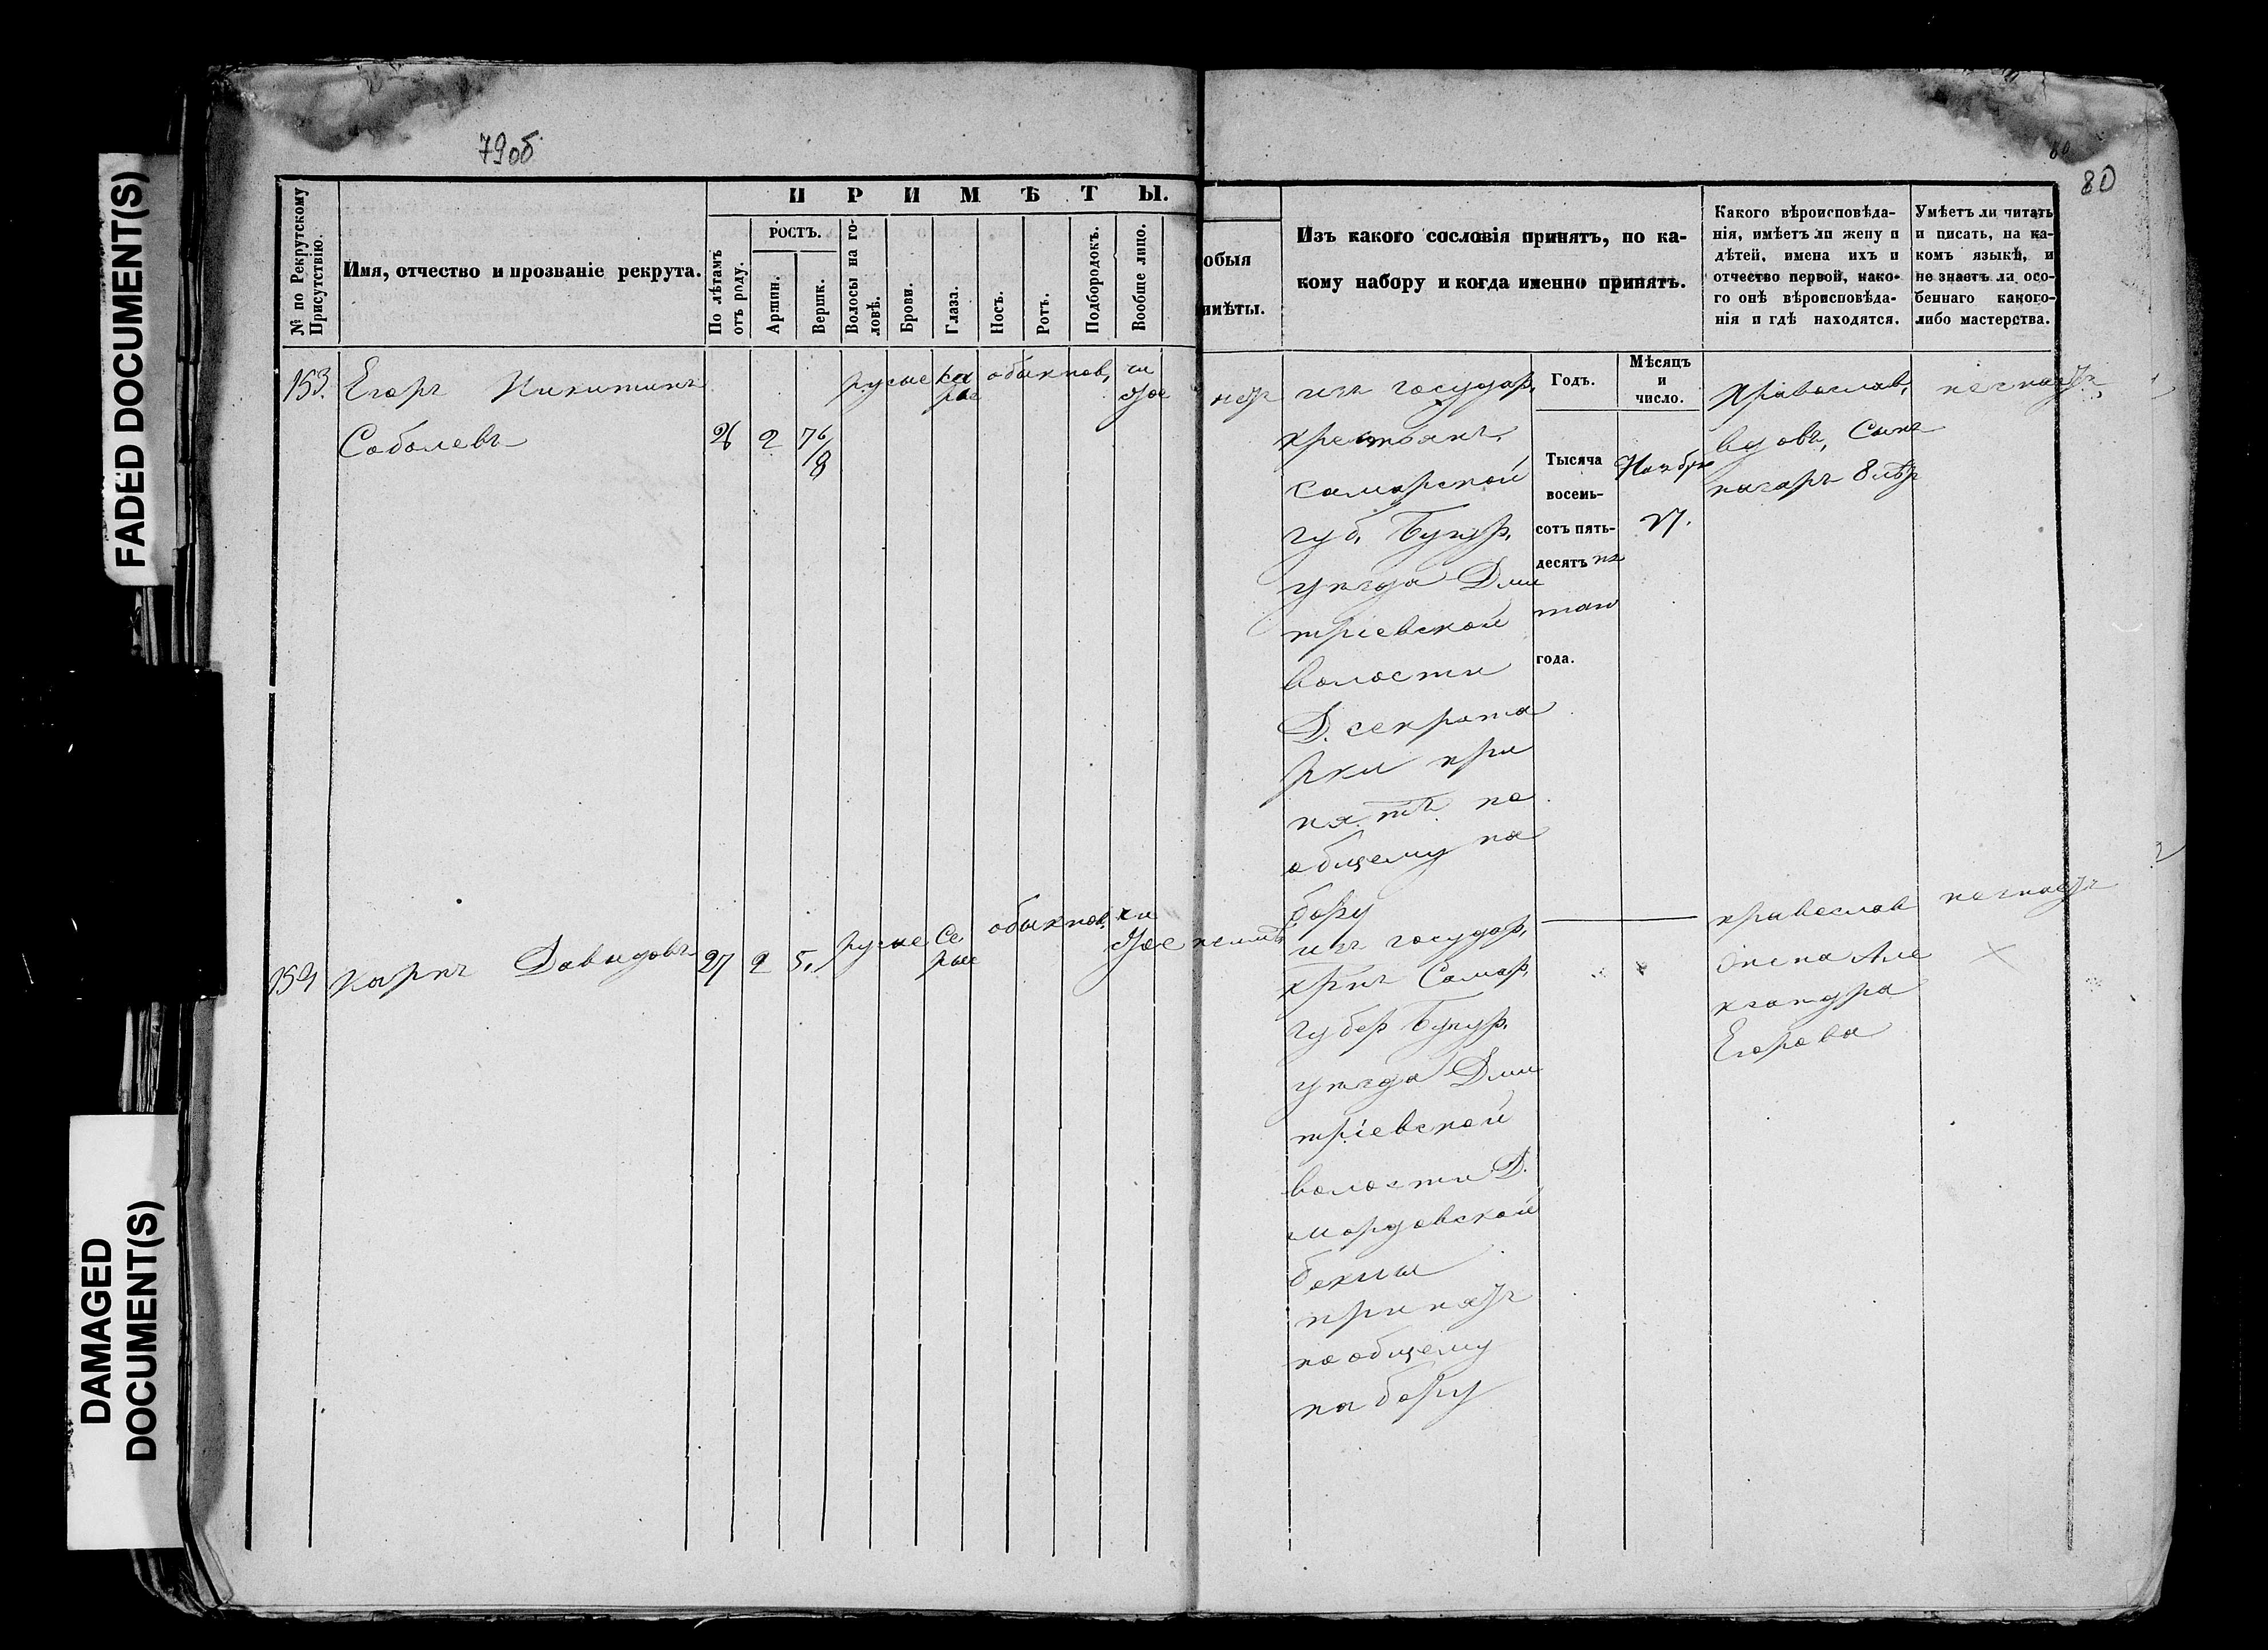 FADED DOCUMENT(S)
DAMAGED
DOCUMENT(S)
79об
80
80
№ по Рекрутскому
Присутствію.
Имя, отчество и прозваніе рекрута.
ПРИМѢТЫ.
По лѣтамъ
отъ роду.
РОСТЪ.
Аршин.
Вершк.
Волосы на го-
ловѣ.
Брови.
Глаза.
Носъ.
Ротъ.
Подбородокъ.
Вообще лицо.
обыя
имѣты.
Изъ какого сословія принятъ, по ка-
кому набору и когда именно принятъ.
Какого вѣроисповѣда-
нія, имѣетъ ли жену и
дѣтей, имена ихъ и
отчество первой, како-
го онѣ вѣроисповѣда-
нія и гдѣ находятся.
Умѣетъ ли читать
и писать, на ка-
комъ языкѣ, и
не знаетъ ли осо-
беннаго какого-
либо мастерства.
153. Егоръ Никитинъ
Соболевъ
26 2 7 6/8
русые
ка
рые
обыкнов,
чи
стое
нетъ
изъ государ,
крестьянъ,
самарской
губ, Бугур,
уезда Дми
тріевской
волости
Д. секрета
рки при
нятъ по
общему на
бору
Годъ.
Тысяча
восемь-
сотъ пять-
десятъ пя
таго
года.
Мѣсяцъ
и
число.
Ноября
27.
Православ,
вдовъ, Сынъ
назаръ 8 лѣтъ
незнаетъ
154 Карпъ Давыдовъ
27 2 5,
русые
Се
рые
обыкнов,
чи
стое
изъ государ,
крнъ Самар,
губер Бугур,
уезда Дми
тріевской
волости Д.
мордовской
бокмы
принятъ
по общему
набору
православ
Жена Але
ксандра
Егорова
незнаетъ